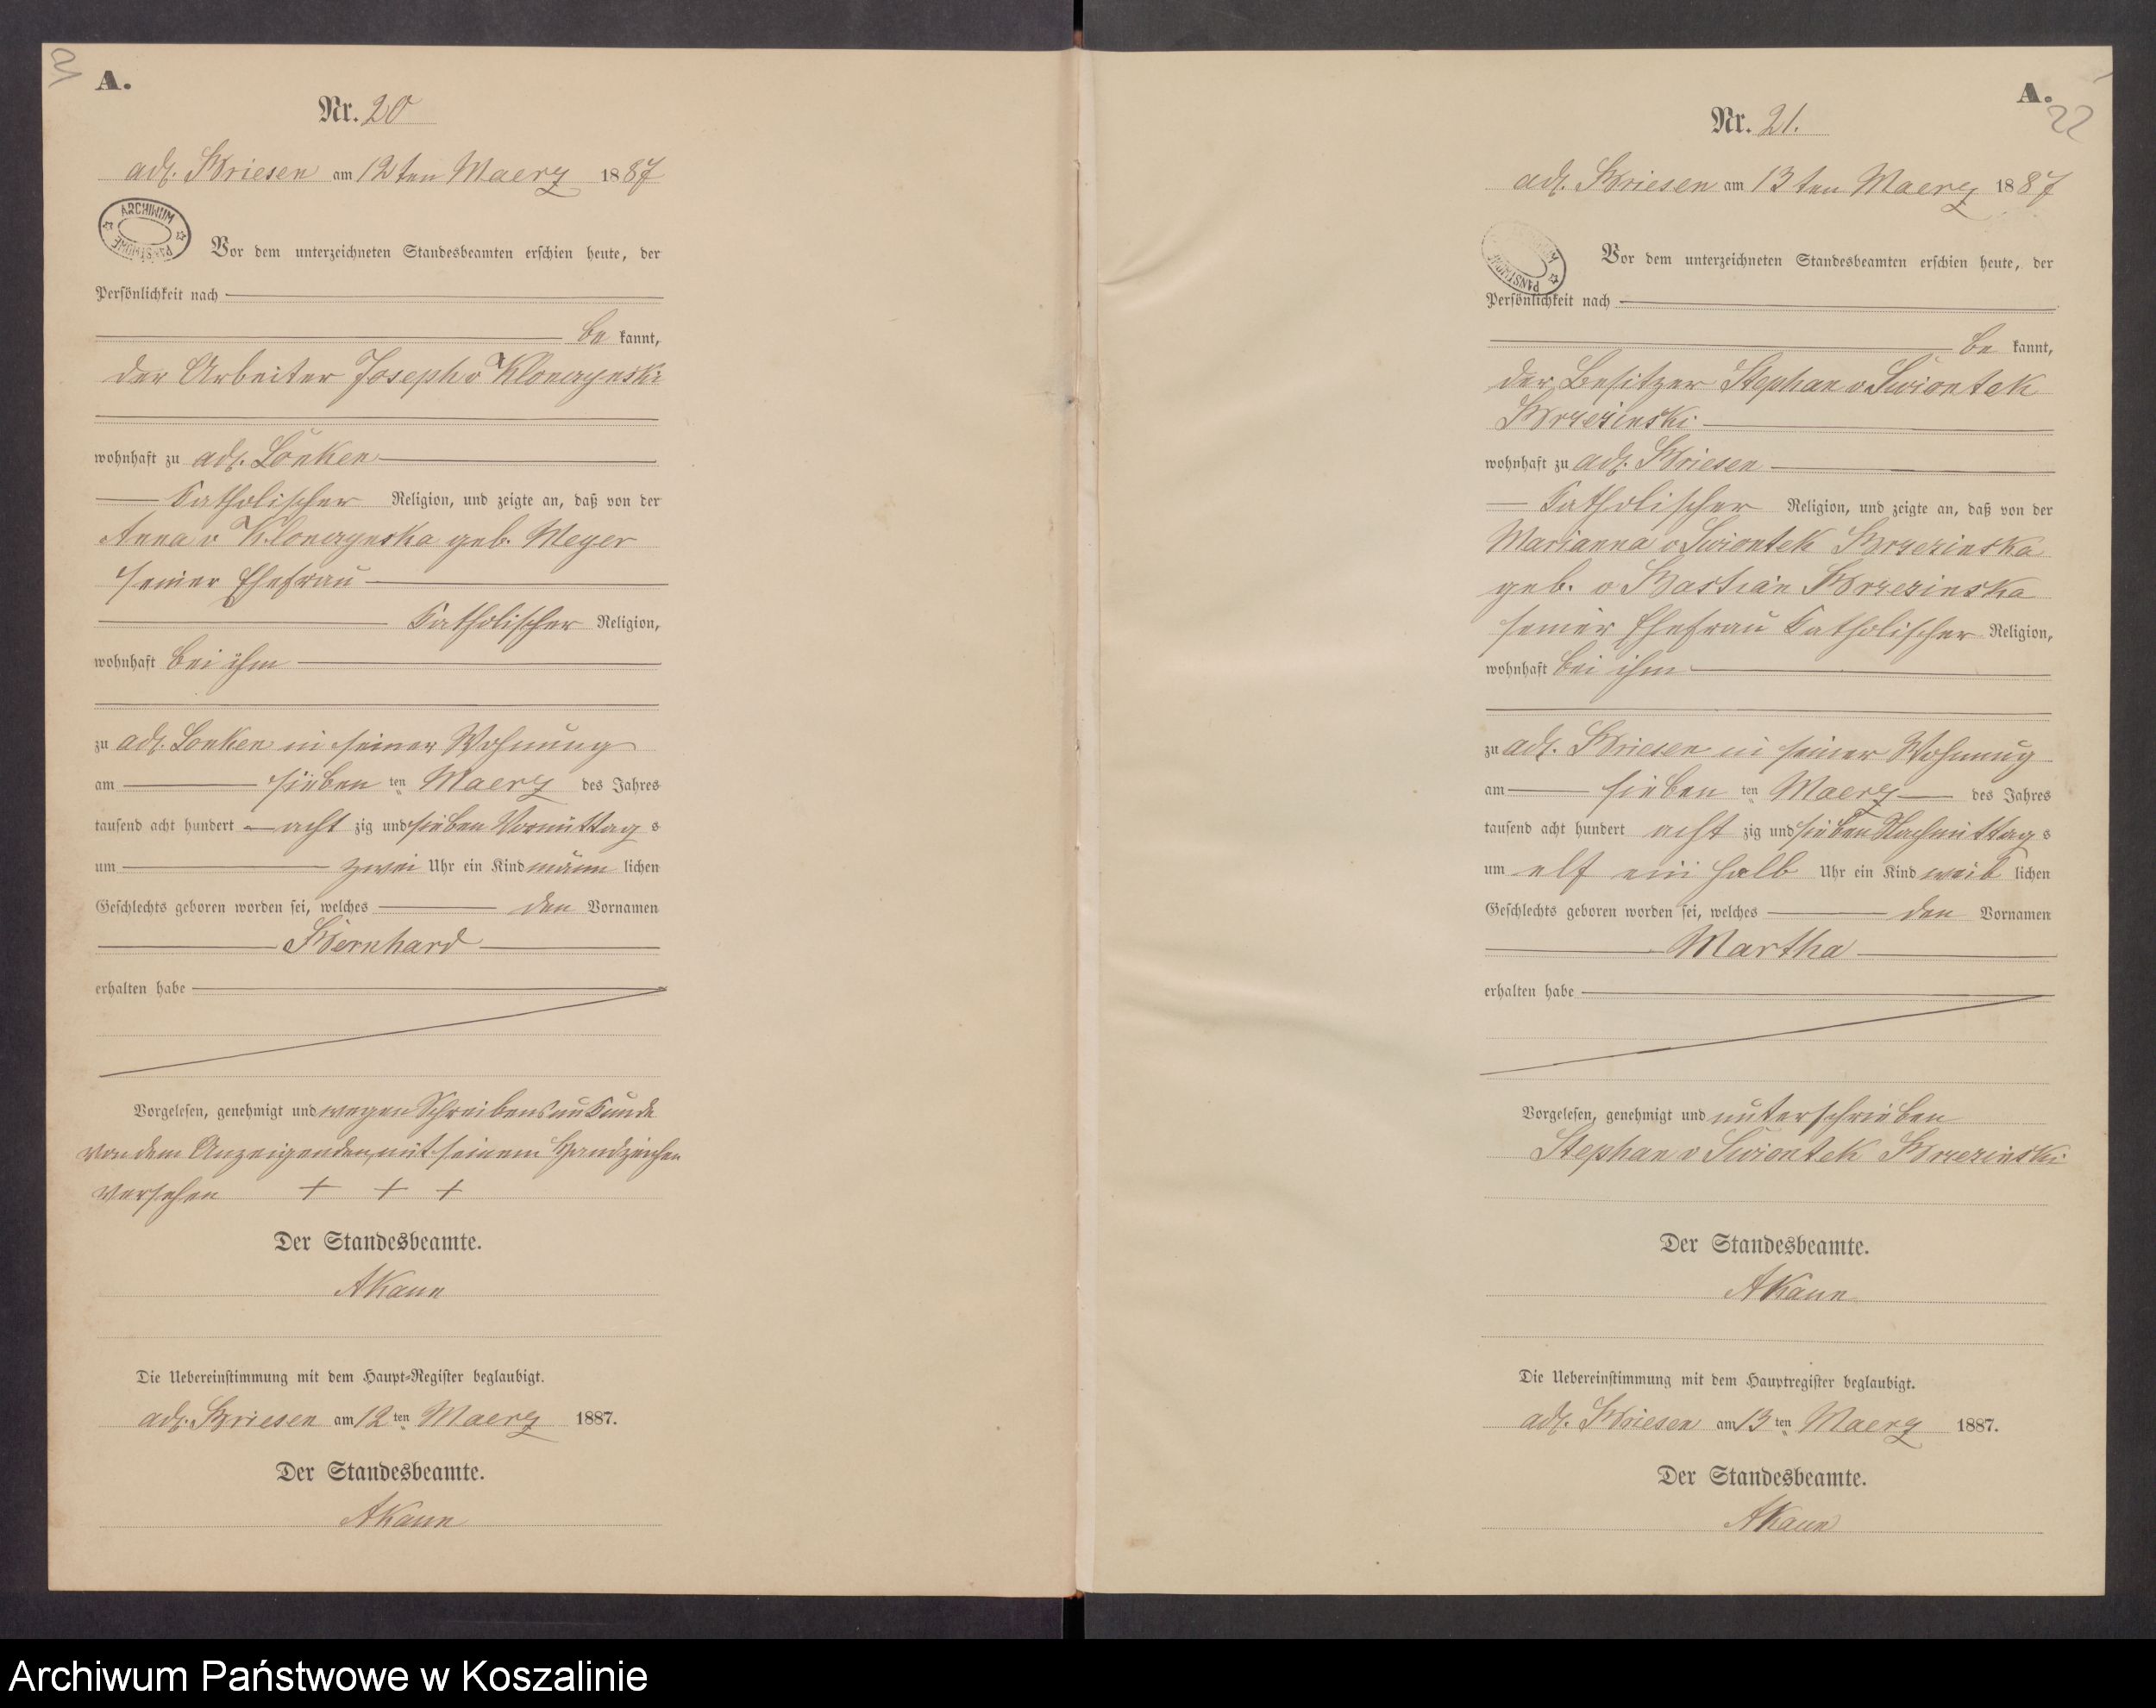 A.
Nr. 20
adl. Briesen am 12ten Maerz 1887
ARCHIWUM PAŃSTWOWE
Vor dem unterzeichneten Standesbeamten erschien heute, der
Persönlichkeit nach
be kannt,
der Arbeiter Joseph v Klonczynski
wohnhaft zu adl. Lonken
Katholischer Religion, und zeigte an, daß von der
Anna v Klonczynska geb. Meyer
seiner Ehefrau
Katholischer Religion,
wohnhaft bei ihm
zu adl. Lonken in seiner Wohnung
am sieben ten Maerz des Jahres
tausend acht hundert acht zig und sieben Vormittag s
um zwei Uhr ein Kind männ lichen
Geschlechts geboren worden sei, welches den Vornamen
Bernhard
erhalten habe
Vorgelesen, genehmigt und wegen Schreibensunkunde
von dem Anzeigenden mit seinem Handzeichen
versehen + + +
Der Standesbeamte.
AKaun
Die Uebereinstimmung mit dem Haupt-Register beglaubigt.
adl. Briesen am 12 ten Maerz 1887.
Der Standesbeamte.
AKaun
A.
22
Nr. 21.
adl. Briesen am 13ten Maerz 1887
Vor dem unterzeichneten Standesbeamten erschien heute, der
Persönlichkeit nach
be kannt,
der Besitzer Stephan v Swiontek
Brzezinski
wohnhaft zu adl. Briesen
Katholischer Religion, und zeigte an, daß von der
Marianna v Swiontek Brzezinska
geb. v Bastian Brzezinska
seiner Ehefrau Katholischer Religion,
wohnhaft bei ihm
zu adl. Briesen in seiner Wohnung
am sieben ten Maerz des Jahres
tausend acht hundert acht zig und sieben Nachmittag s
um elf ein halb Uhr ein Kind weib lichen
Geschlechts geboren worden sei, welches den Vornamen
Martha
erhalten habe
Vorgelesen, genehmigt und unterschrieben
Stephan v Swiontek Brzezinski
Der Standesbeamte.
AKaun
Die Uebereinstimmung mit dem Hauptregister beglaubigt.
adl. Briesen am 13 ten Maerz 1887.
Der Standesbeamte.
AKaun
Archiwum Państwowe w Koszalinie